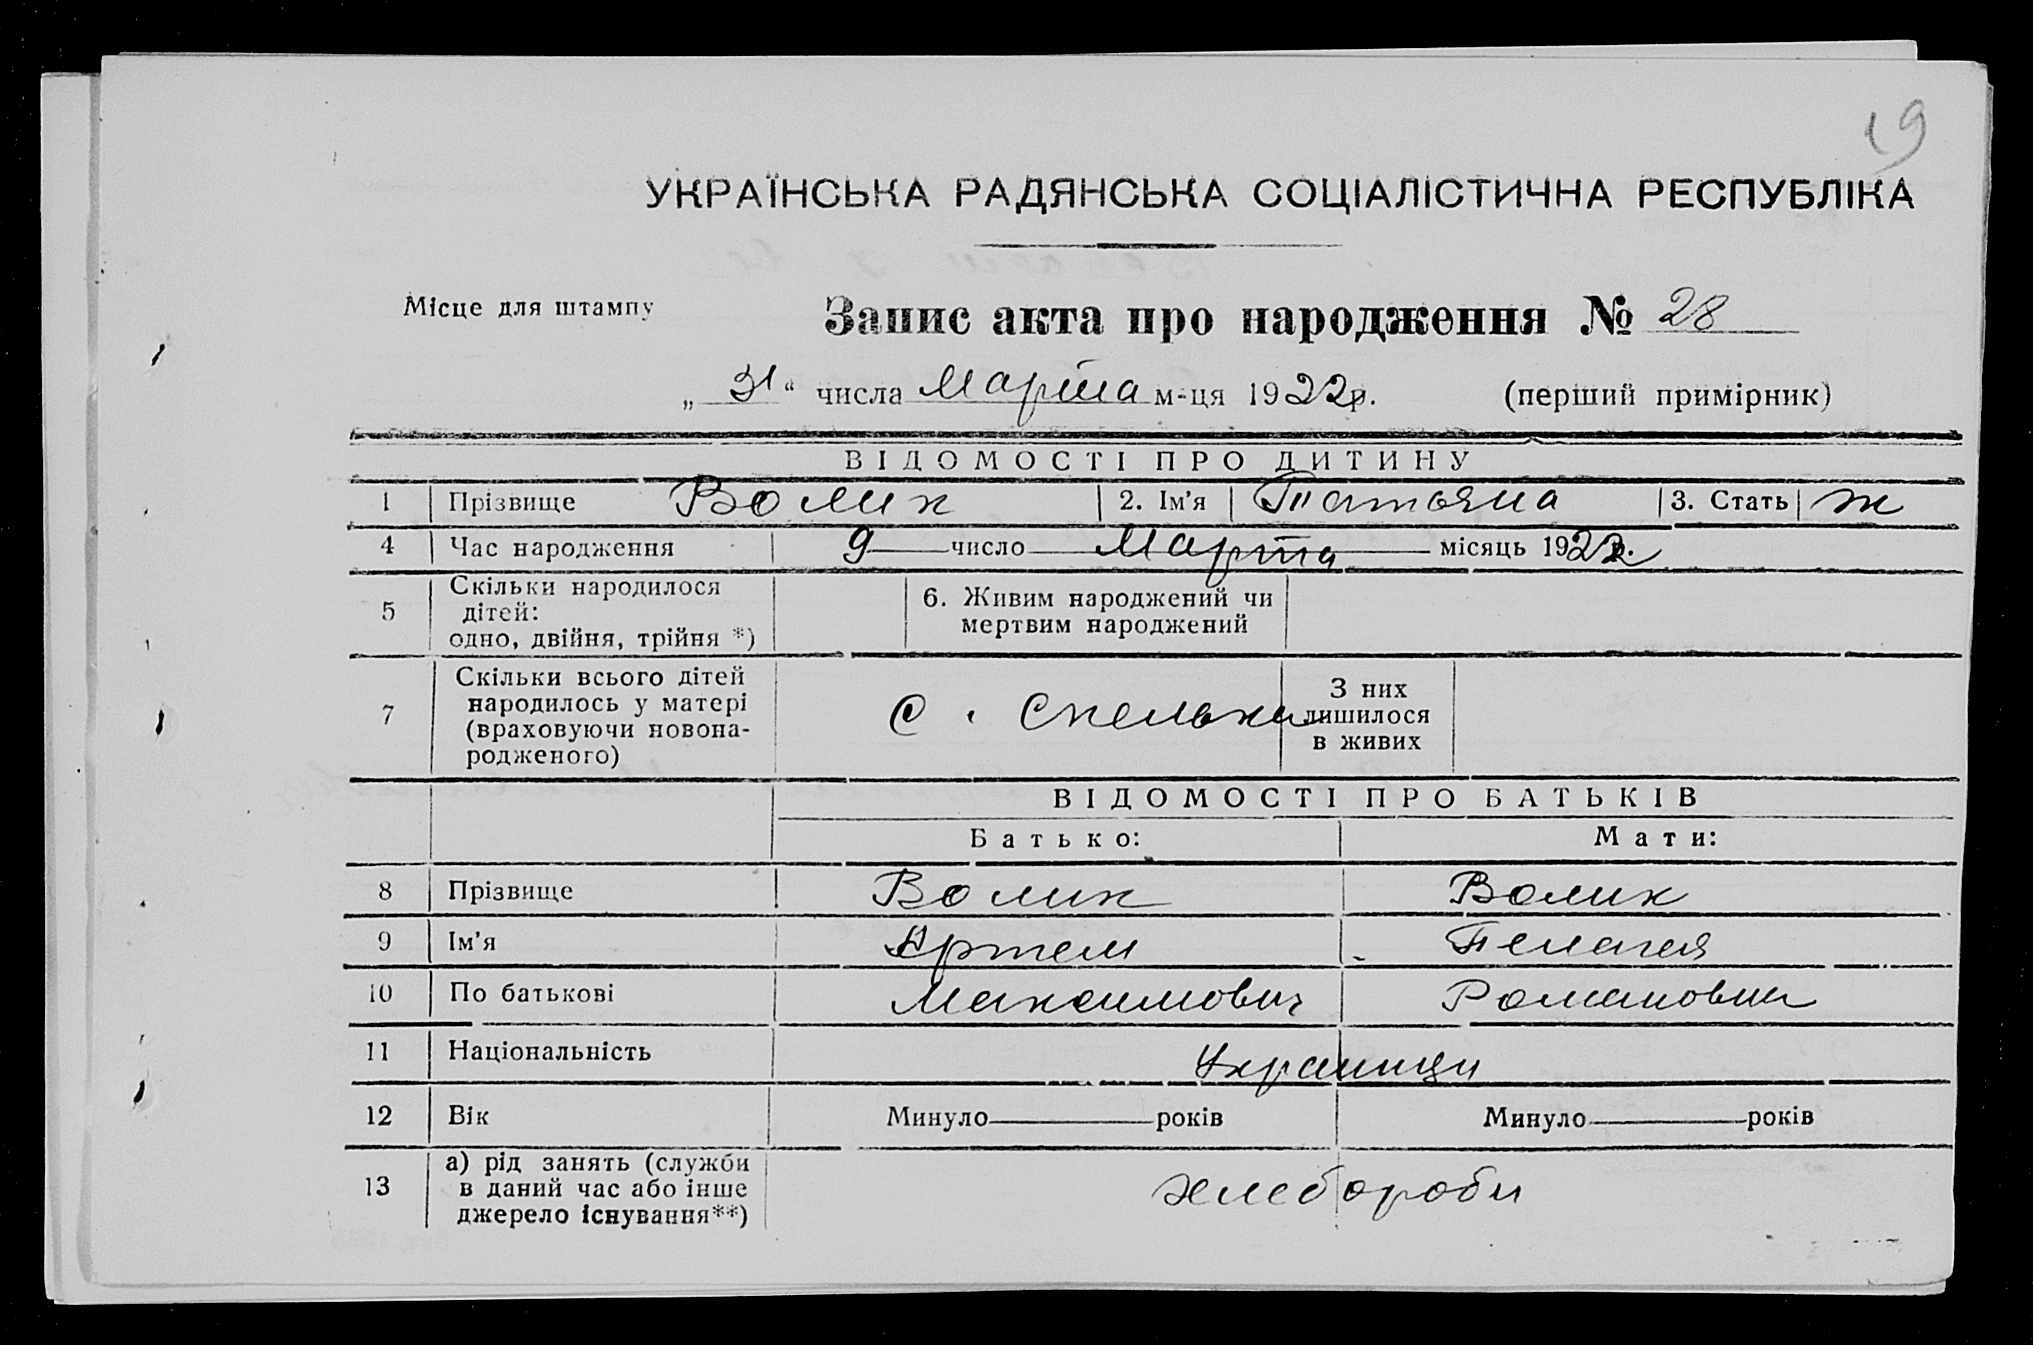 19
УКРАЇНСЬКА РАДЯНСЬКА СОЦІАЛІСТИЧНА РЕСПУБЛІКА
Місце для штампу
Запис акта про народження № 28
„ 31 “ числа Марта м-ця 1922р. (перший примірник)
ВІДОМОСТІ ПРО ДИТИНУ
1 Прізвище Волик 2. Ім'я Татьяна 3. Стать ж
4 Час народження 9 число Марта місяць 1922р.
5 Скільки народилося дітей: одно, двійня, трійня *)
6. Живим народжений чи мертвим народжений
7 Скільки всього дітей народилось у матері (враховуючи новонародженого) с. Спельки З них лишилося в живих
ВІДОМОСТІ ПРО БАТЬКІВ
Батько: Мати:
8 Прізвище Волик Волик
9 Ім'я Артем Пелагея
10 По батькові Максимович Романовна
11 Національність Украинци
12 Вік Минуло років Минуло років
13 а) рід занять (служби в даний час або інше джерело існування**) хлебороби